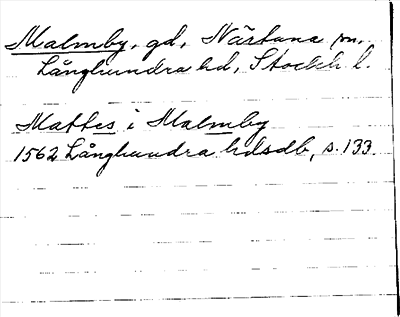 Malmby, gd, Närtuna sn,
Långhundra hd, Stockh. l.
Mattes i Malmby
1562 Långhundra hdsdb, s. 133.